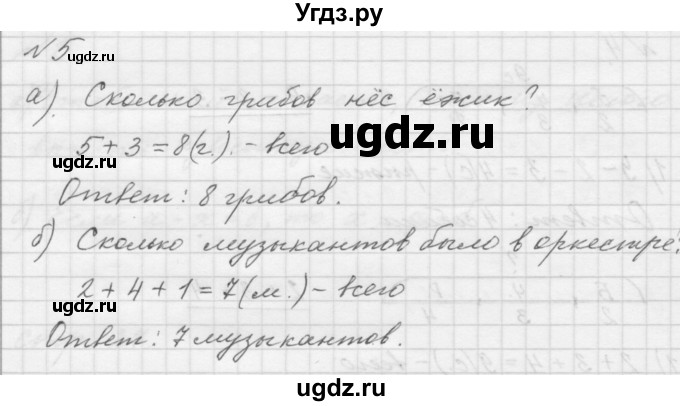 Угдз.ру
№ 5
ugdz.ru ugdz.ru
а) Сколько грибов нёс ёжик?
ugdz.ru
5 + 3 = 8 (г.) - всего
ugdz.ru ugdz.ru
Ответ: 8 грибов.
б) Сколько музыкантов было в оркестре?
ugdz.ru
2 + 4 + 1 = 7 (м.) - всего
ugdz.ru ugdz.ru
Ответ: 7 музыкантов.
ugdz.ru